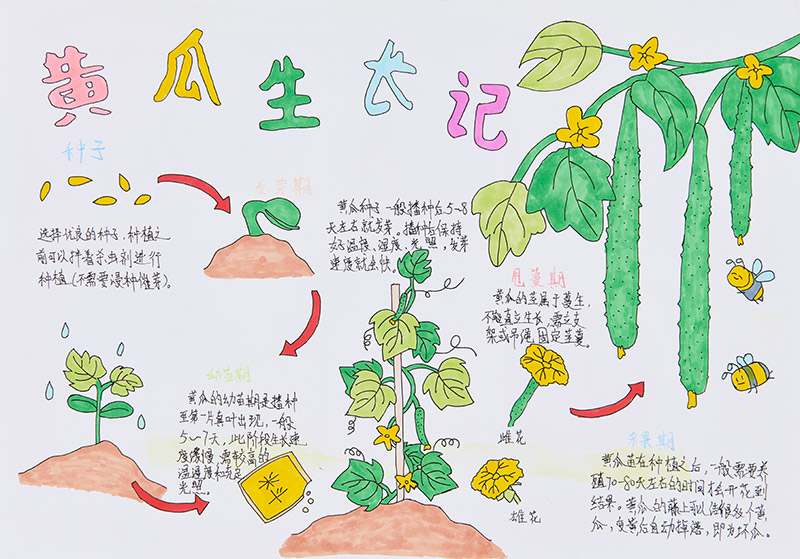 黄瓜生长记
种子
选择优良的种子，种植之
前可以拌着杀虫剂进行
种植（不需要浸种催芽）。
发芽期
黄瓜种子一般播种后5~8
天左右就发芽。播种后保持
好温度、湿度、光照，发芽
速度就会快。
幼苗期
黄瓜的幼苗期是播种
至第一片真叶出现，一般
5~7天，此阶段生长速
度缓慢，需较高的
温湿度和充足
光照。
甩蔓期
黄瓜的茎属于蔓生，
不能直立生长，需立支
架或吊绳固定茎蔓。
雌花
雄花
结果期
黄瓜苗在种植之后，一般需要养
殖70-80天左右的时间才会开花到
结果。黄瓜的藤上可以结很多个黄
瓜，变黄后自动掉落，即为坏瓜。